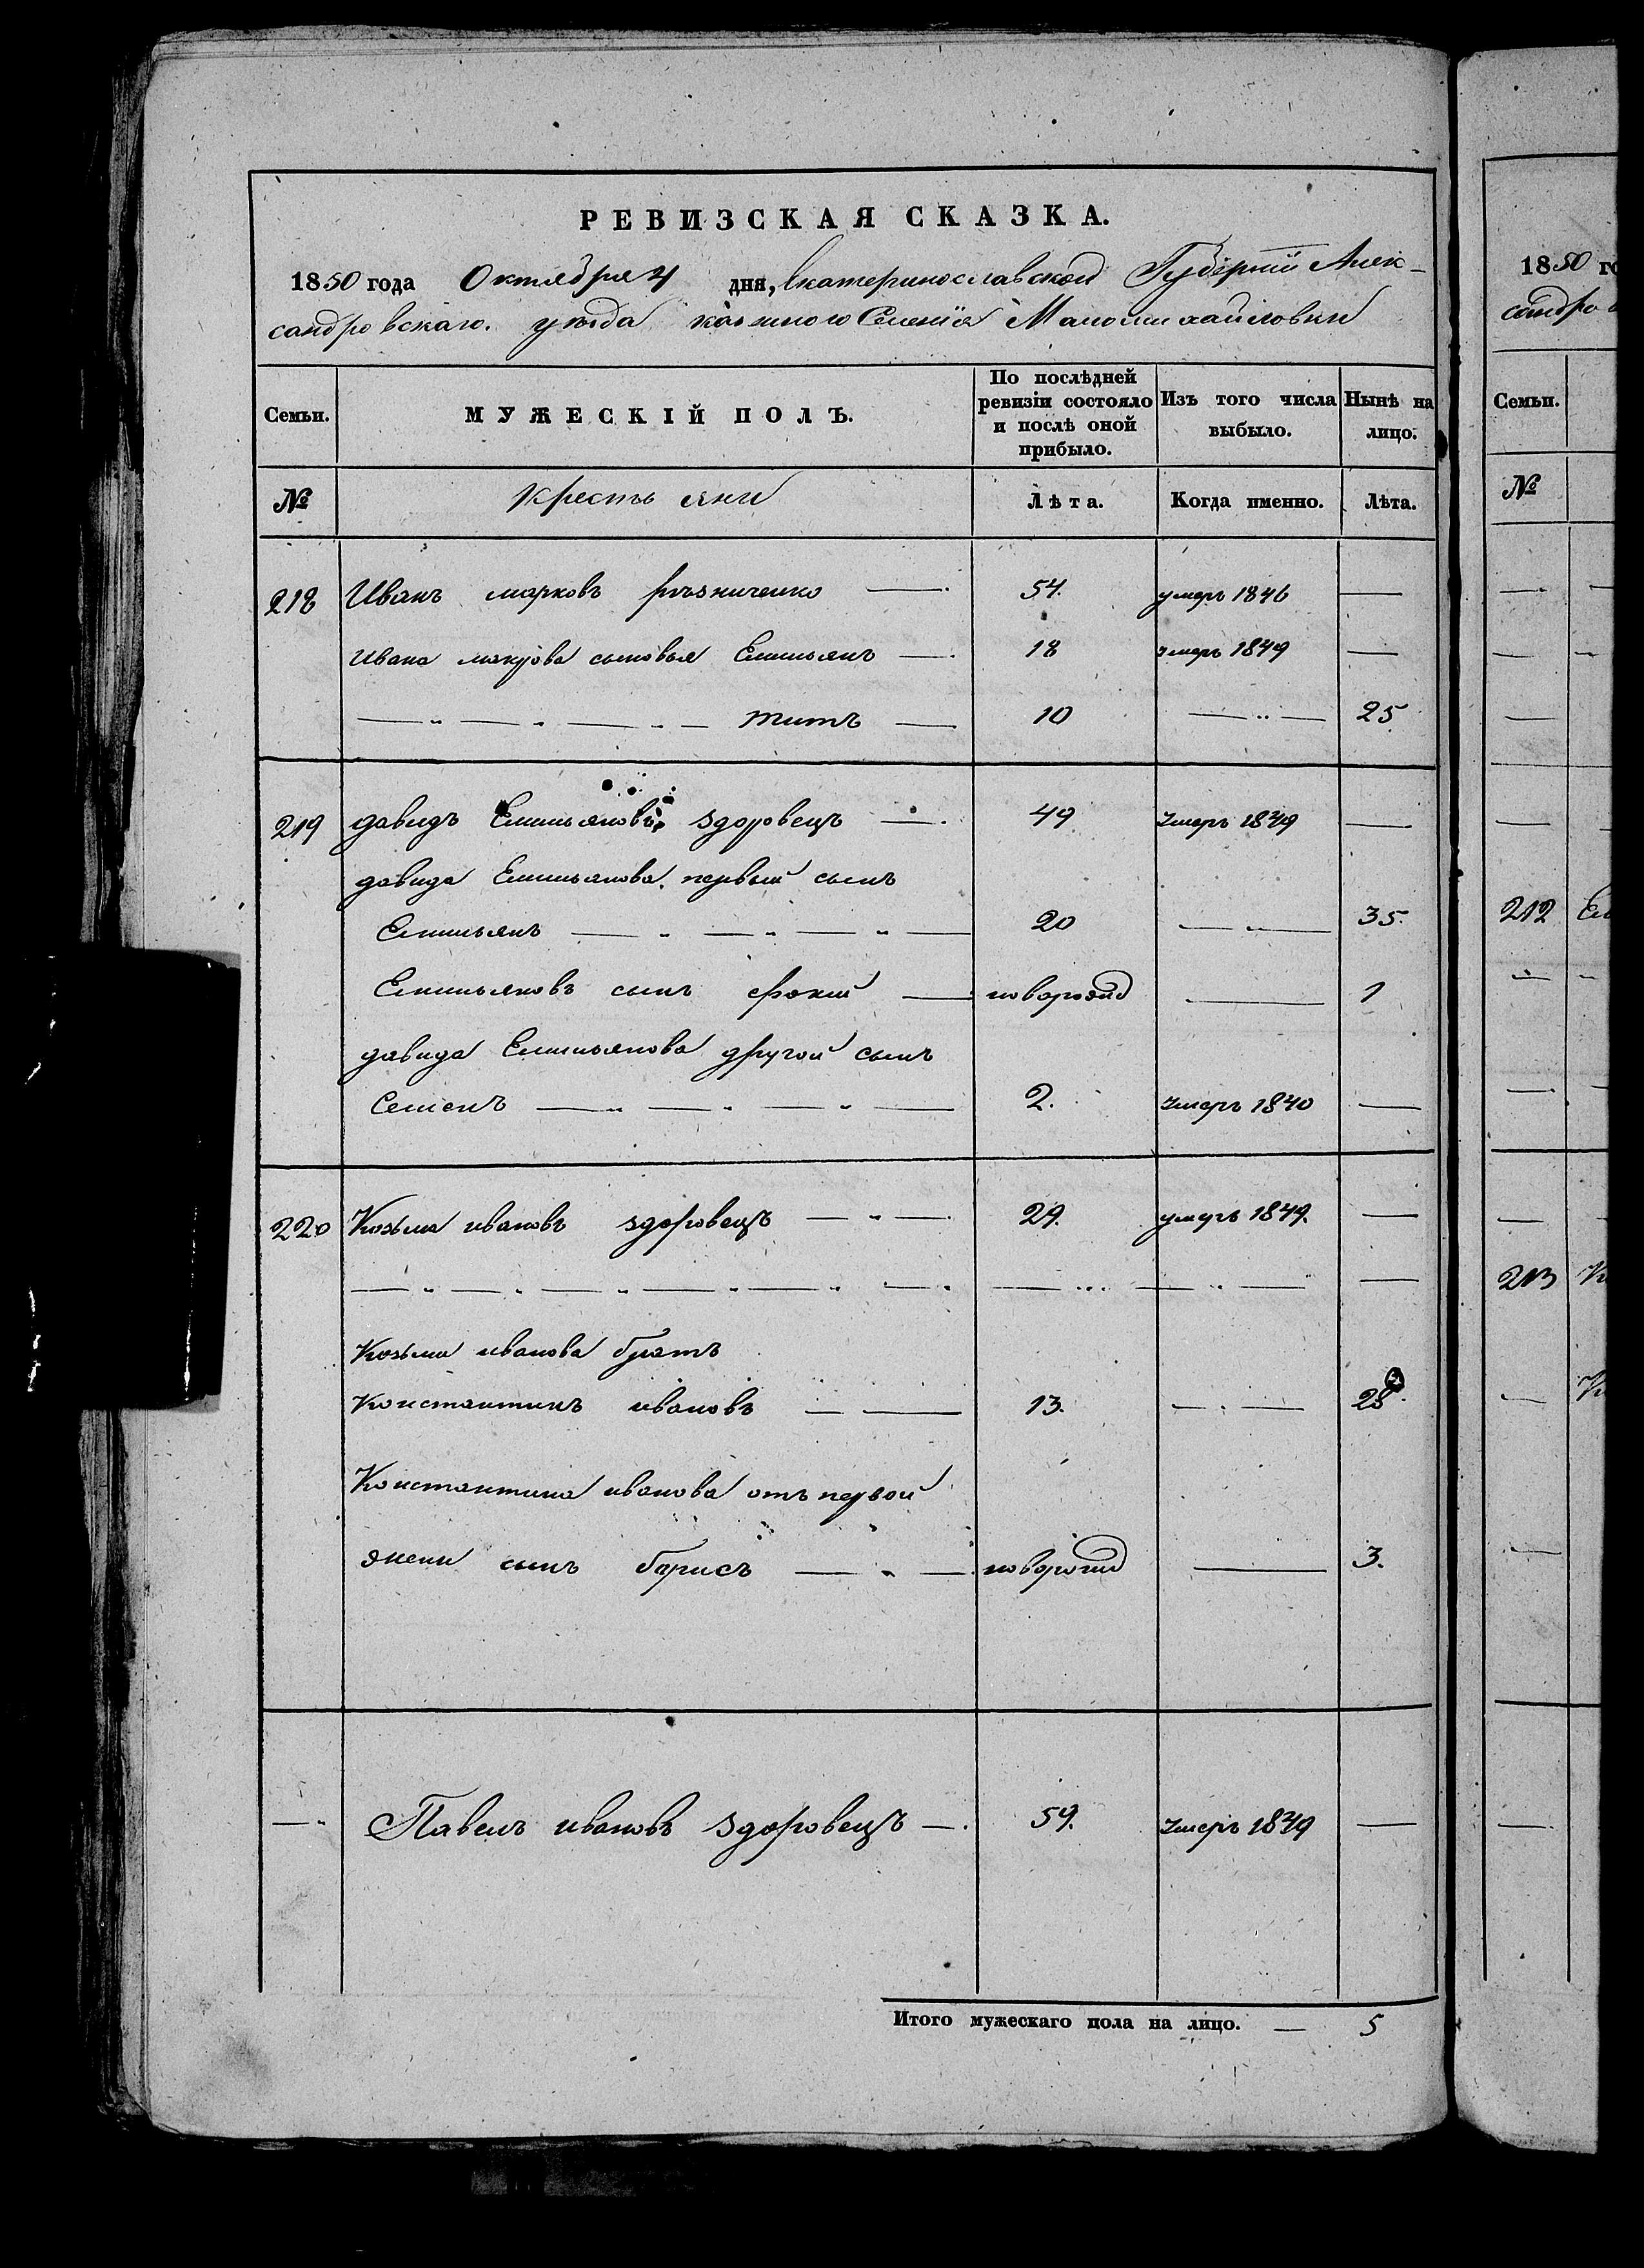 РЕВИЗСКАЯ СКАЗКА.
1850 года Октября 4 дня, Екатеринославской Губерніи Алек-
сандровскаго. уѣзда казенного Селенія Маломихайловки
Семьи. МУЖЕСКІЙ ПОЛЪ. По послѣдней ревизіи состояло и послѣ оной прибыло. Изъ того числа выбыло. Нынѣ на лицо.
№ Крестьяни Лѣта. Когда именно. Лѣта.
218 Иванъ марковъ рѣзниченко — 54. умеръ 1846 —
Ивана маркова сыновья Емельянъ — 18 умеръ 1849 —
— " — " — " — титъ — 10 — " — 25
219 давидъ Емельяновъ здоровецъ — 49 умеръ 1849 —
давида Емельянова первый сынъ
Емельянъ — " — " — " — 20 — " — 35.
Емельяновъ сынъ фокий — новорожд — 1
давида Емельянова другой сынъ
Семенъ — " — " — " — 2. умеръ 1840 —
220 Козьма ивановъ здоровецъ — " — 29. умеръ 1849. —
— " — " — " — " — " — " — " — " — —
Козьма иванова братъ
Константинъ ивановъ — — 13. — " — 28.
Константина иванова отъ первой
жены сынъ борисъ — " — новорожд — 3.
— " Павелъ ивановъ здоровецъ — 59. умеръ 1849 —
Итого мужескаго пола на лицо. — 5
1850 го
сандров
Семьи.
№
212 Ем
213 К